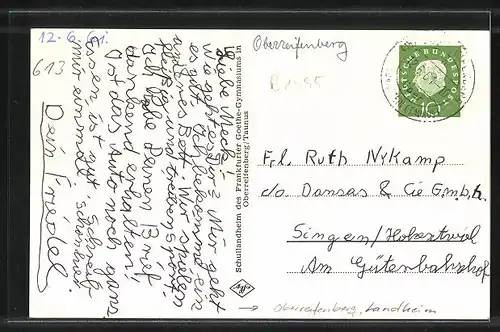 12.6.61.
613
Liebe Mama!
wie geht es dir? Mir geht
es gut. Ich bekomme ein
anderes Bett. Wir spielen
fleißig und treiben Sport.
Ich habe Deinen Brief
dankend erhalten.
Ist das Auto noch ganz.
Essen ist gut. Schreib
mir einmal
Dein Friedel
Schullandheim des Frankfurter Goethe-Gymnasiums in
Oberreifenberg/Taunus
Oberreifenberg
DEUTSCHE BUNDESPOST
10
Frl. Ruth Nykamp
c/o Dansas & Cie G.m.b.H.
Singen/Hohentwiel
Am Güterbahnhof
→ Oberreifenberg, Landheim